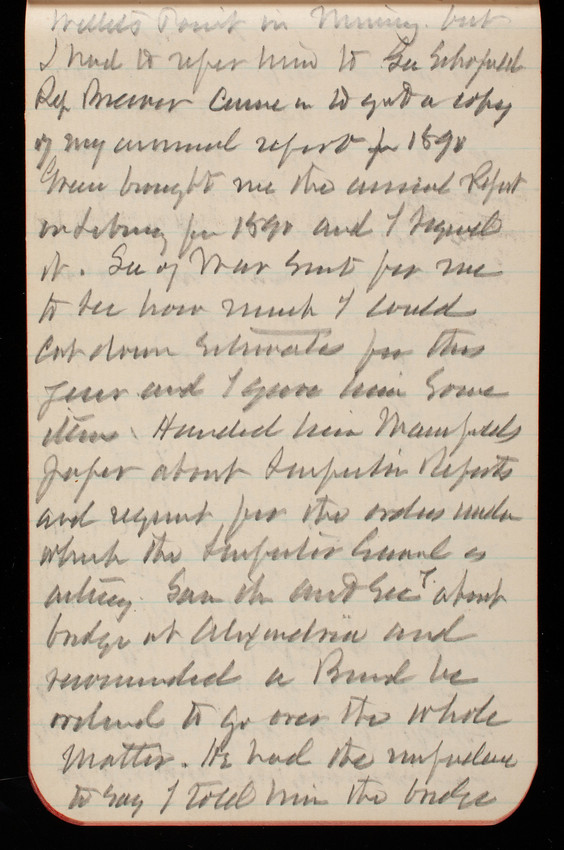 Willets Point in Mining. but
I had to refer him to Gen Schofield
Rep Brewer came in to get a copy
of my annual report for 1890
Green brought me the annual Report
for 1890 and I signed
it. Sec of War sent for me
to see how much I could
cut down Estimates for this
year and I gave him some
items. Handed him Mansfields
paper about Inspector Reports
and request for the orders under
which the Inspector General is
acting. Saw the Asst Secy about
bridge at Alexandria and
recommended a Board be
ordered to go over the whole
matter. He had the impudence
to say I told him the bridge